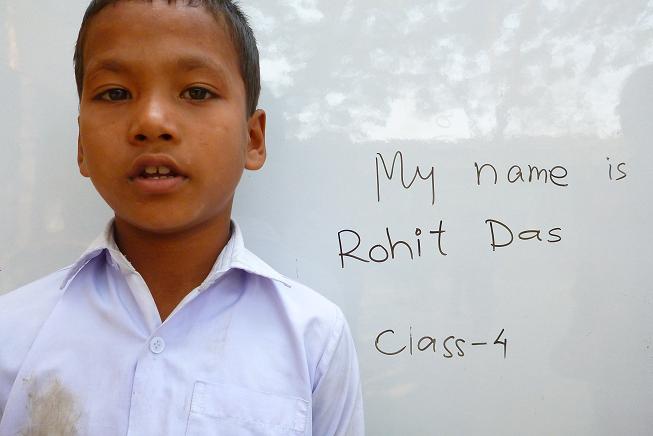 My name is
Rohit Das
Class-4